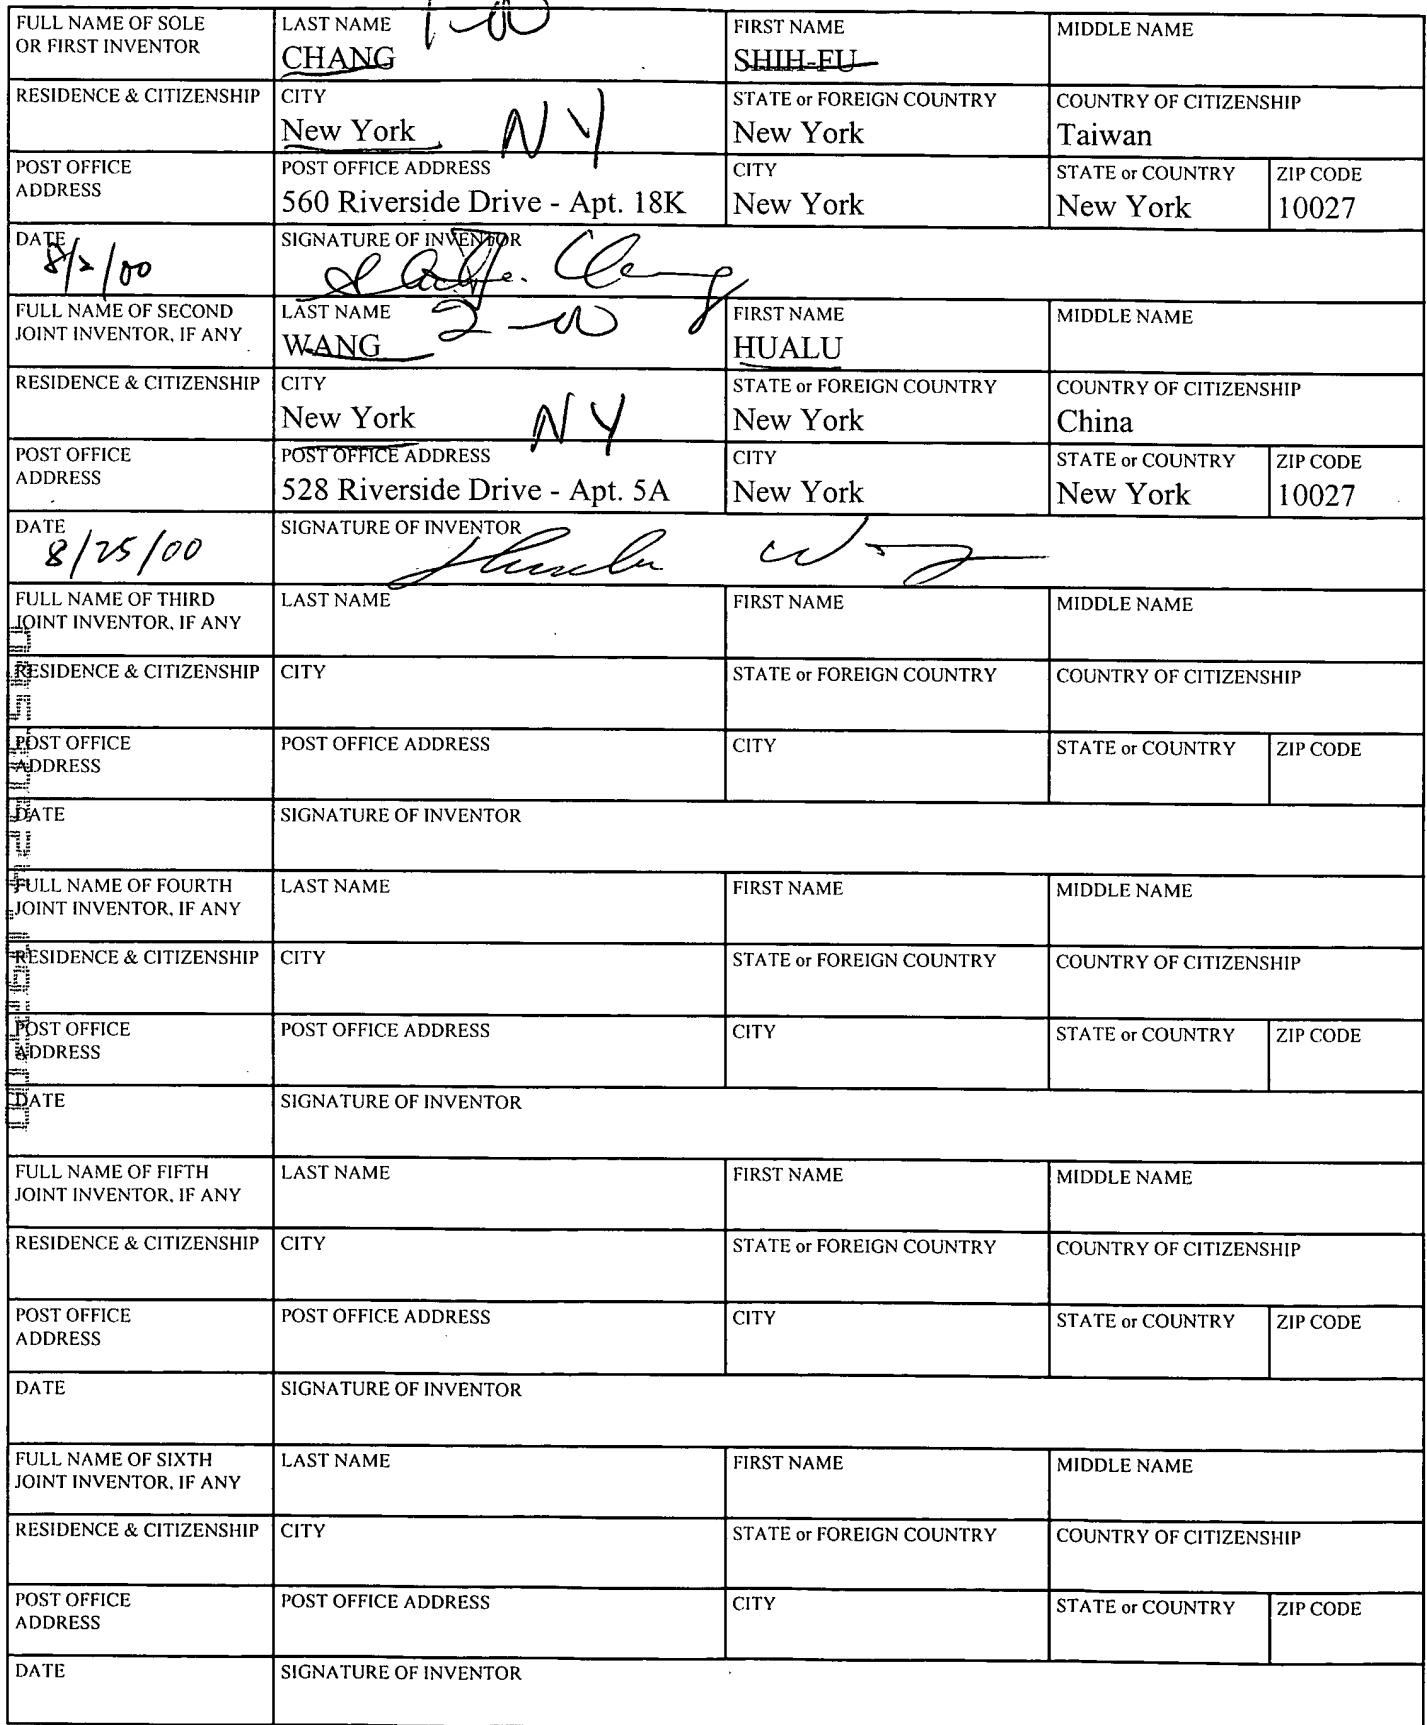 FULL NAME OF SOLE OR FIRST INVENTOR LAST NAME 1-00 CHANG FIRST NAME SHIH-FU MIDDLE NAME
RESIDENCE & CITIZENSHIP CITY New York NY STATE or FOREIGN COUNTRY New York COUNTRY OF CITIZENSHIP Taiwan
POST OFFICE ADDRESS POST OFFICE ADDRESS 560 Riverside Drive - Apt. 18K CITY New York STATE or COUNTRY New York ZIP CODE 10027
DATE 8/2/00 SIGNATURE OF INVENTOR
FULL NAME OF SECOND JOINT INVENTOR, IF ANY LAST NAME 2-00 WANG FIRST NAME HUALU MIDDLE NAME
RESIDENCE & CITIZENSHIP CITY New York NY STATE or FOREIGN COUNTRY New York COUNTRY OF CITIZENSHIP China
POST OFFICE ADDRESS POST OFFICE ADDRESS 528 Riverside Drive - Apt. 5A CITY New York STATE or COUNTRY New York ZIP CODE 10027
DATE 8/25/00 SIGNATURE OF INVENTOR Hualu Wang
FULL NAME OF THIRD JOINT INVENTOR, IF ANY LAST NAME FIRST NAME MIDDLE NAME
RESIDENCE & CITIZENSHIP CITY STATE or FOREIGN COUNTRY COUNTRY OF CITIZENSHIP
POST OFFICE ADDRESS POST OFFICE ADDRESS CITY STATE or COUNTRY ZIP CODE
DATE SIGNATURE OF INVENTOR
FULL NAME OF FOURTH JOINT INVENTOR, IF ANY LAST NAME FIRST NAME MIDDLE NAME
RESIDENCE & CITIZENSHIP CITY STATE or FOREIGN COUNTRY COUNTRY OF CITIZENSHIP
POST OFFICE ADDRESS POST OFFICE ADDRESS CITY STATE or COUNTRY ZIP CODE
DATE SIGNATURE OF INVENTOR
FULL NAME OF FIFTH JOINT INVENTOR, IF ANY LAST NAME FIRST NAME MIDDLE NAME
RESIDENCE & CITIZENSHIP CITY STATE or FOREIGN COUNTRY COUNTRY OF CITIZENSHIP
POST OFFICE ADDRESS POST OFFICE ADDRESS CITY STATE or COUNTRY ZIP CODE
DATE SIGNATURE OF INVENTOR
FULL NAME OF SIXTH JOINT INVENTOR, IF ANY LAST NAME FIRST NAME MIDDLE NAME
RESIDENCE & CITIZENSHIP CITY STATE or FOREIGN COUNTRY COUNTRY OF CITIZENSHIP
POST OFFICE ADDRESS POST OFFICE ADDRESS CITY STATE or COUNTRY ZIP CODE
DATE SIGNATURE OF INVENTOR